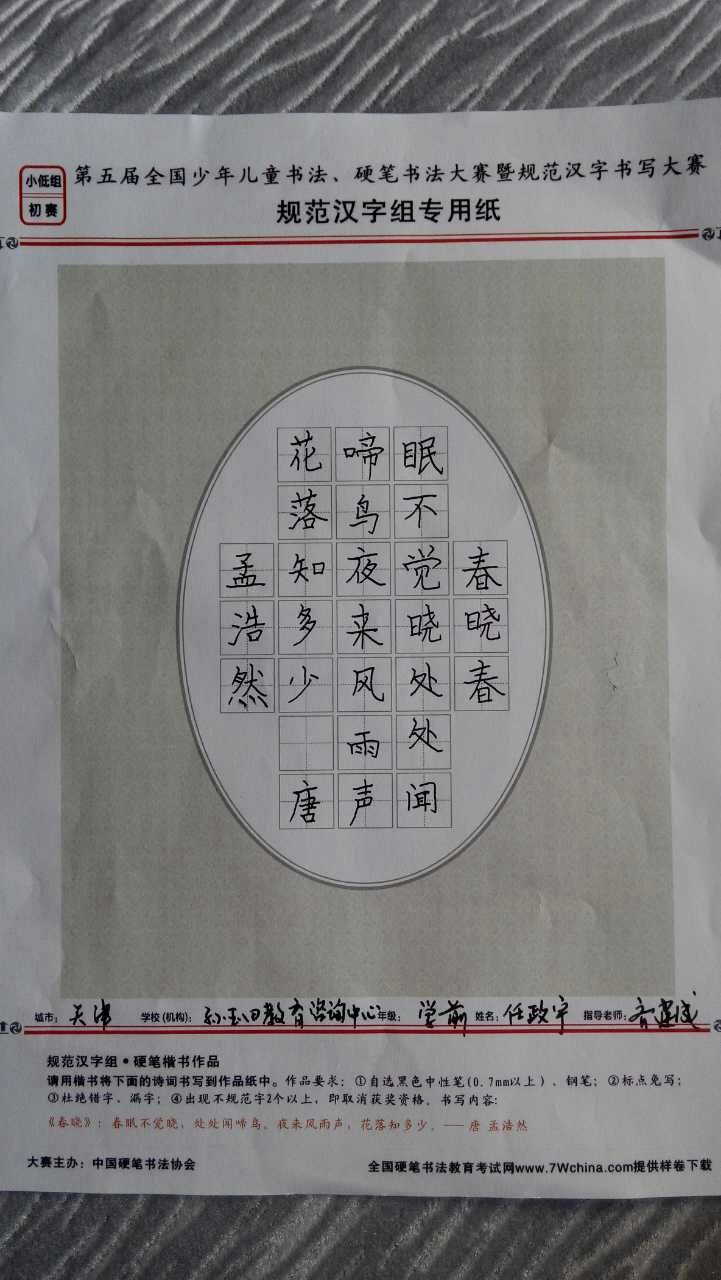 小低组
初赛
第五届全国少年儿童书法、硬笔书法大赛暨规范汉字书写大赛
规范汉字组专用纸
春晓春
眠不觉晓处处闻
啼鸟夜来风雨声
花落知多少 唐
孟浩然
城市：天津 学校(机构)：孙玉田教育咨询中心 年级：学前 姓名：任政宇 指导老师：齐建成
规范汉字组·硬笔楷书作品
请用楷书将下面的诗词书写到作品纸中。作品要求：①自选黑色中性笔(0.7mm以上)、钢笔；②标点免写；
③杜绝错字、漏字；④出现不规范字2个以上，即取消获奖资格。书写内容：
《春晓》：春眠不觉晓，处处闻啼鸟。夜来风雨声，花落知多少。——唐 孟浩然
大赛主办：中国硬笔书法协会 全国硬笔书法教育考试网www.7Wchina.com提供样卷下载